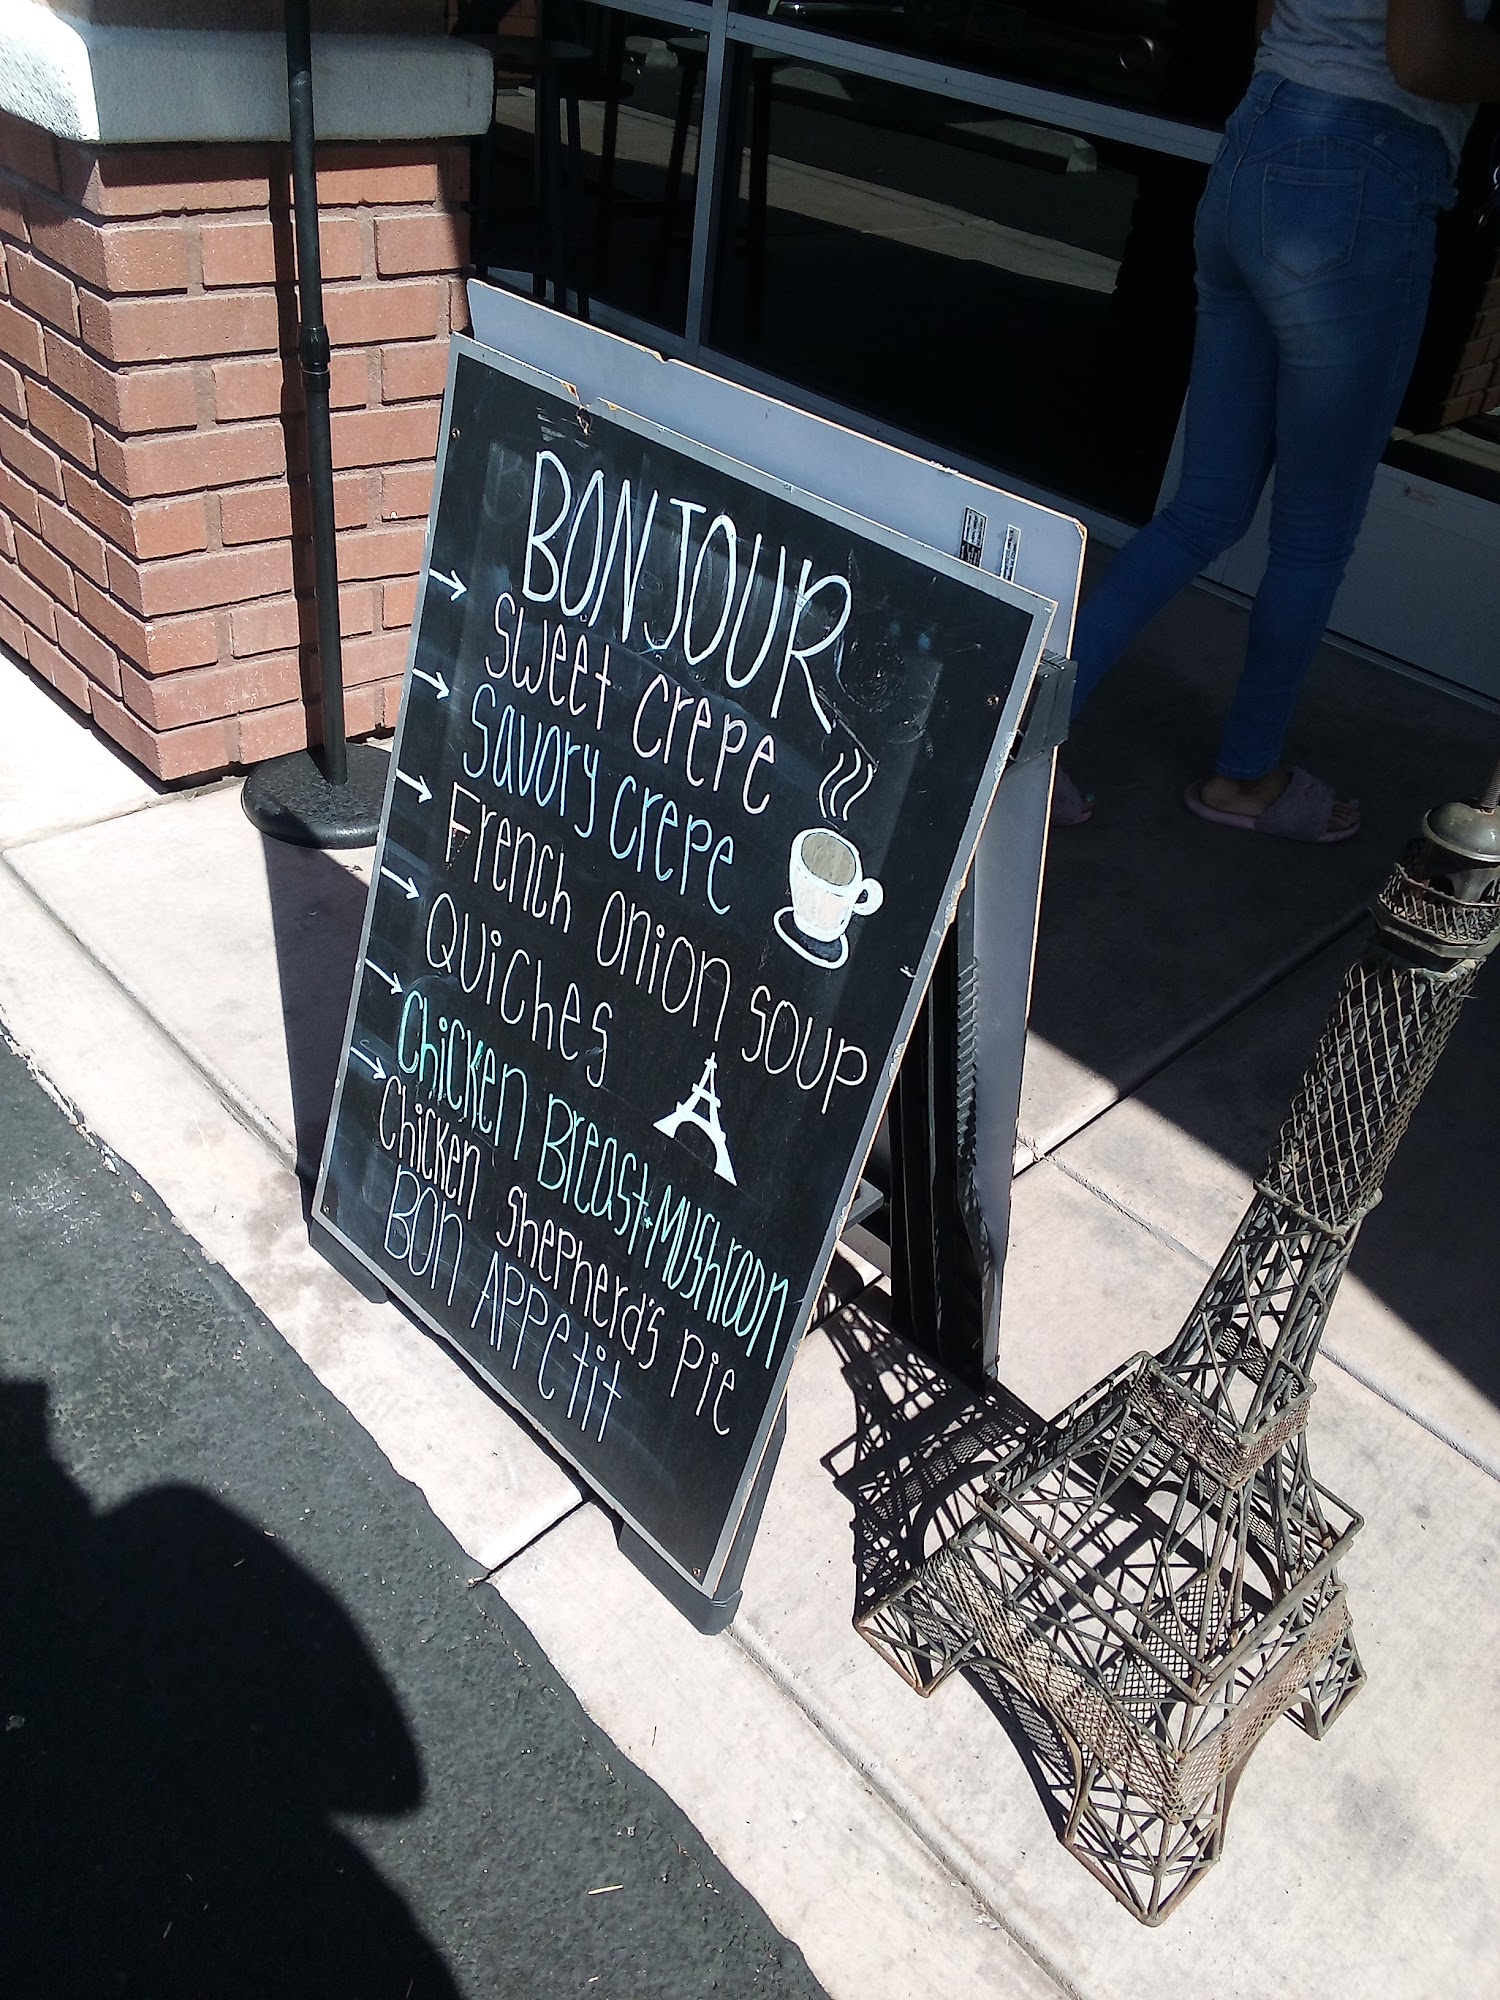 BONJOUR
→ Sweet crepe
→ Savory crepe
→ French onion soup
→ Quiches
→ Chicken Breast + Mushroom
→ Chicken Shepherd's pie
Bon Appetit